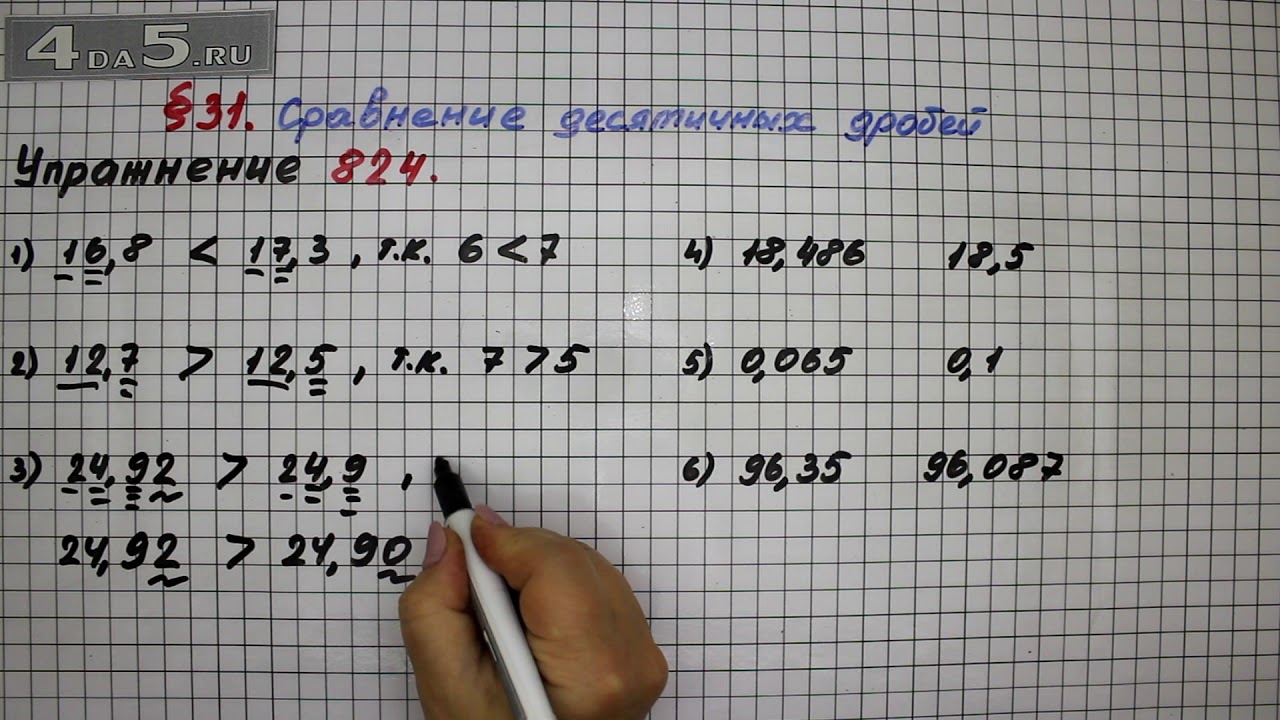 4DA5.RU
§31. Сравнение десятичных дробей
Упражнение 824.
1) 16,8 < 17,3, т.к. 6 < 7
2) 12,7 > 12,5, т.к. 7 > 5
3) 24,92 > 24,9,
24,92 > 24,90
4) 18,486 18,5
5) 0,065 0,1
6) 96,35 96,087